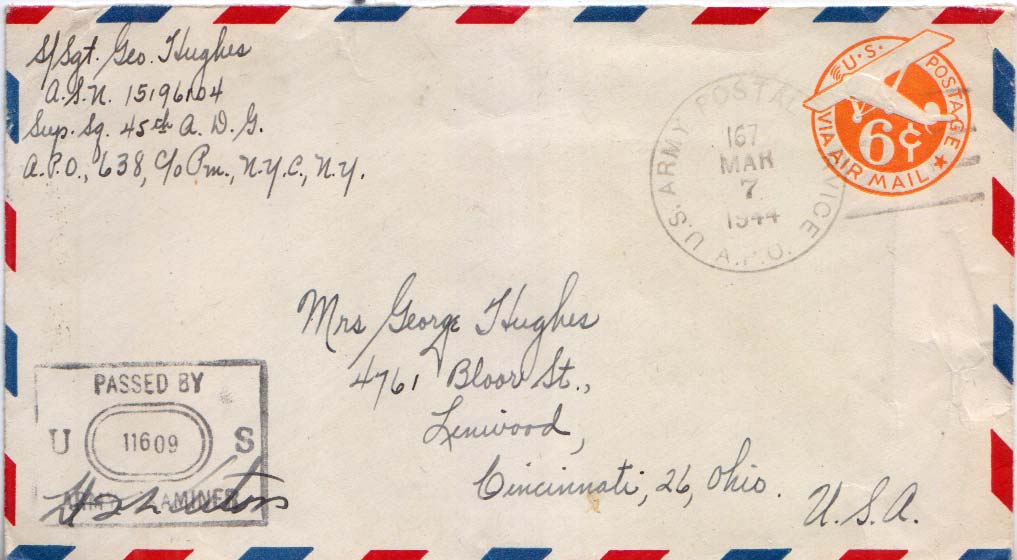 S/Sgt. Geo. Hughes
A.S.N. 15196104
Sup. Sq. 45th A. D. G.
A.P.O., 638, c/o Pm., N.Y.C., N.Y.
U.S. POSTAGE
6¢
VIA AIR MAIL
U.S. ARMY POSTAL SERVICE
167
MAR
7
1944
A.P.O.
Mrs George Hughes
4761 Bloor St.,
Linwood,
Cincinnati, 26, Ohio.
U.S.A.
PASSED BY
U 11609 S
ARMY EXAMINER